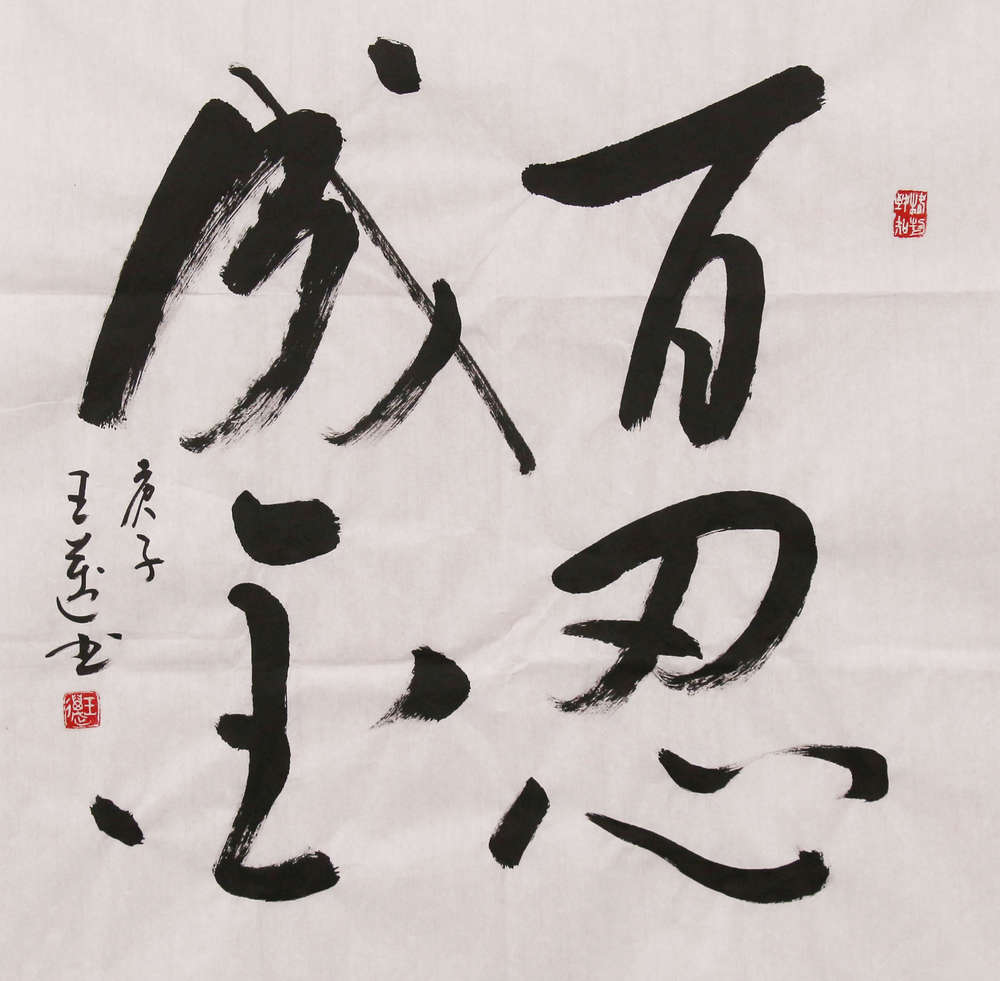 百忍
成金
庚子
王邁书